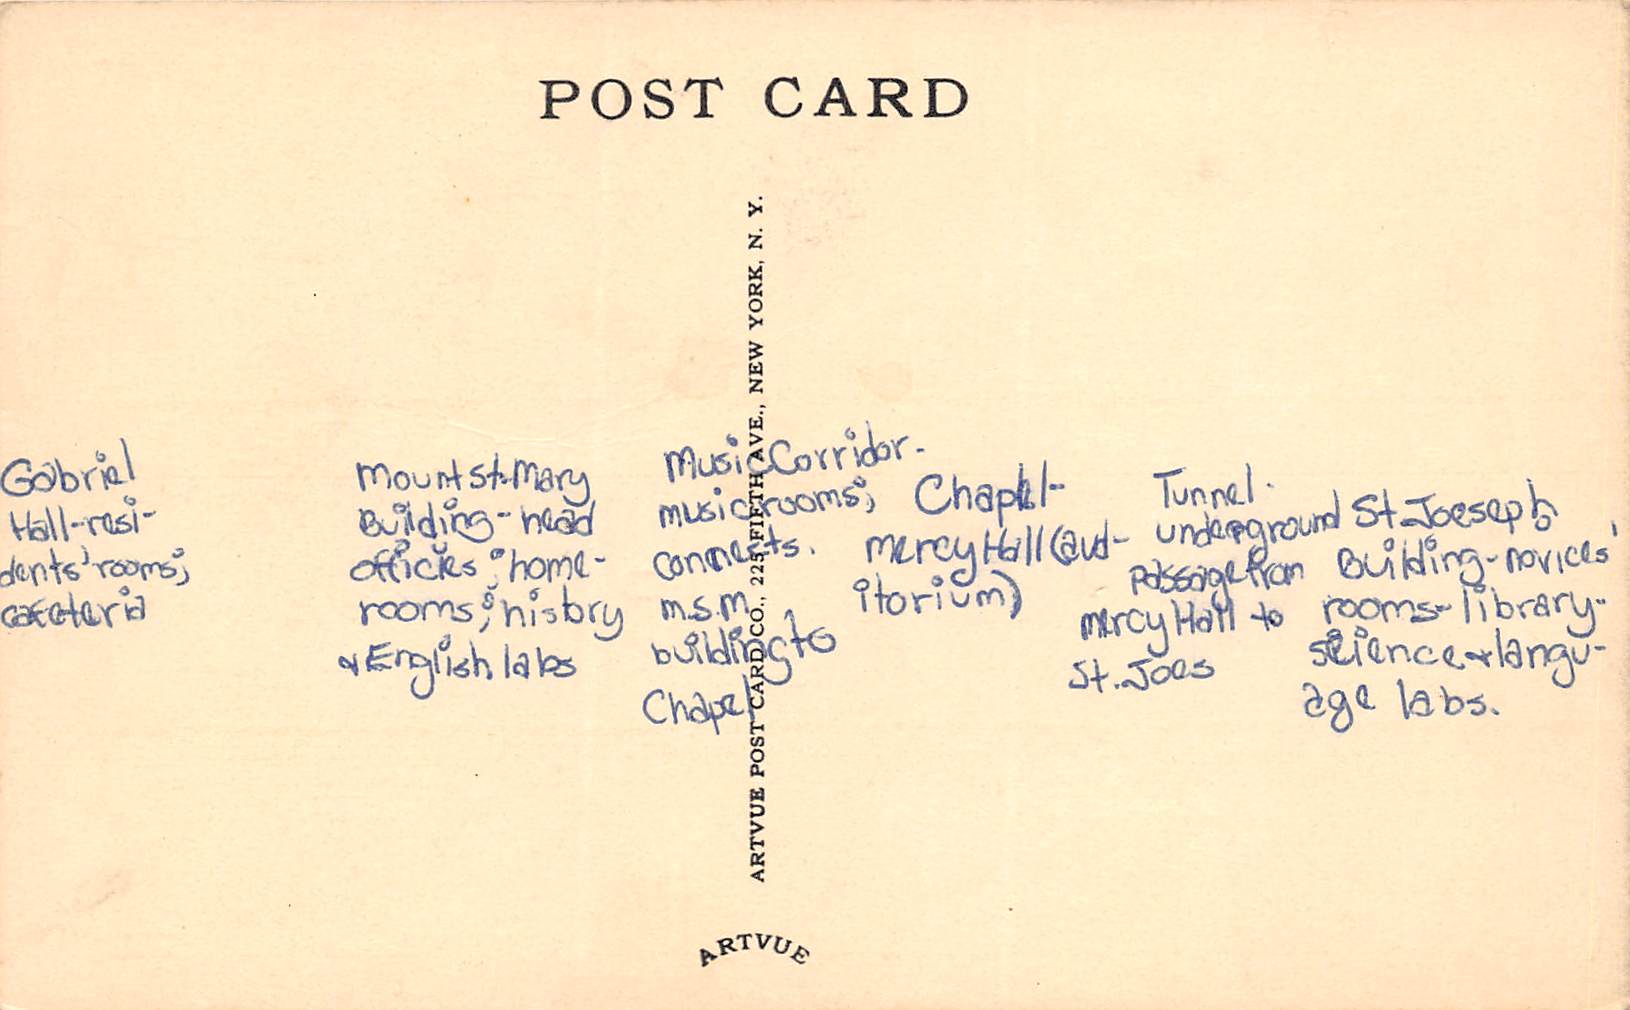 POST CARD
Gabriel
Hall-resi-
dents' rooms;
cafeteria
Mount St. Mary
Building-head
officies; home-
rooms; history
& English labs
Music Corridor-
music rooms;
connects.
m.s.m.
building to
Chapel
Chapel-
Mercy Hall (aud-
itorium)
Tunnel-
underground
passage from
Mercy Hall to
St. Joes
St. Joeseph
Building-novices'
rooms-library-
science & langu-
age labs.
ARTVUE POST CARD CO., 225 FIFTH AVE., NEW YORK, N. Y.
ARTVUE